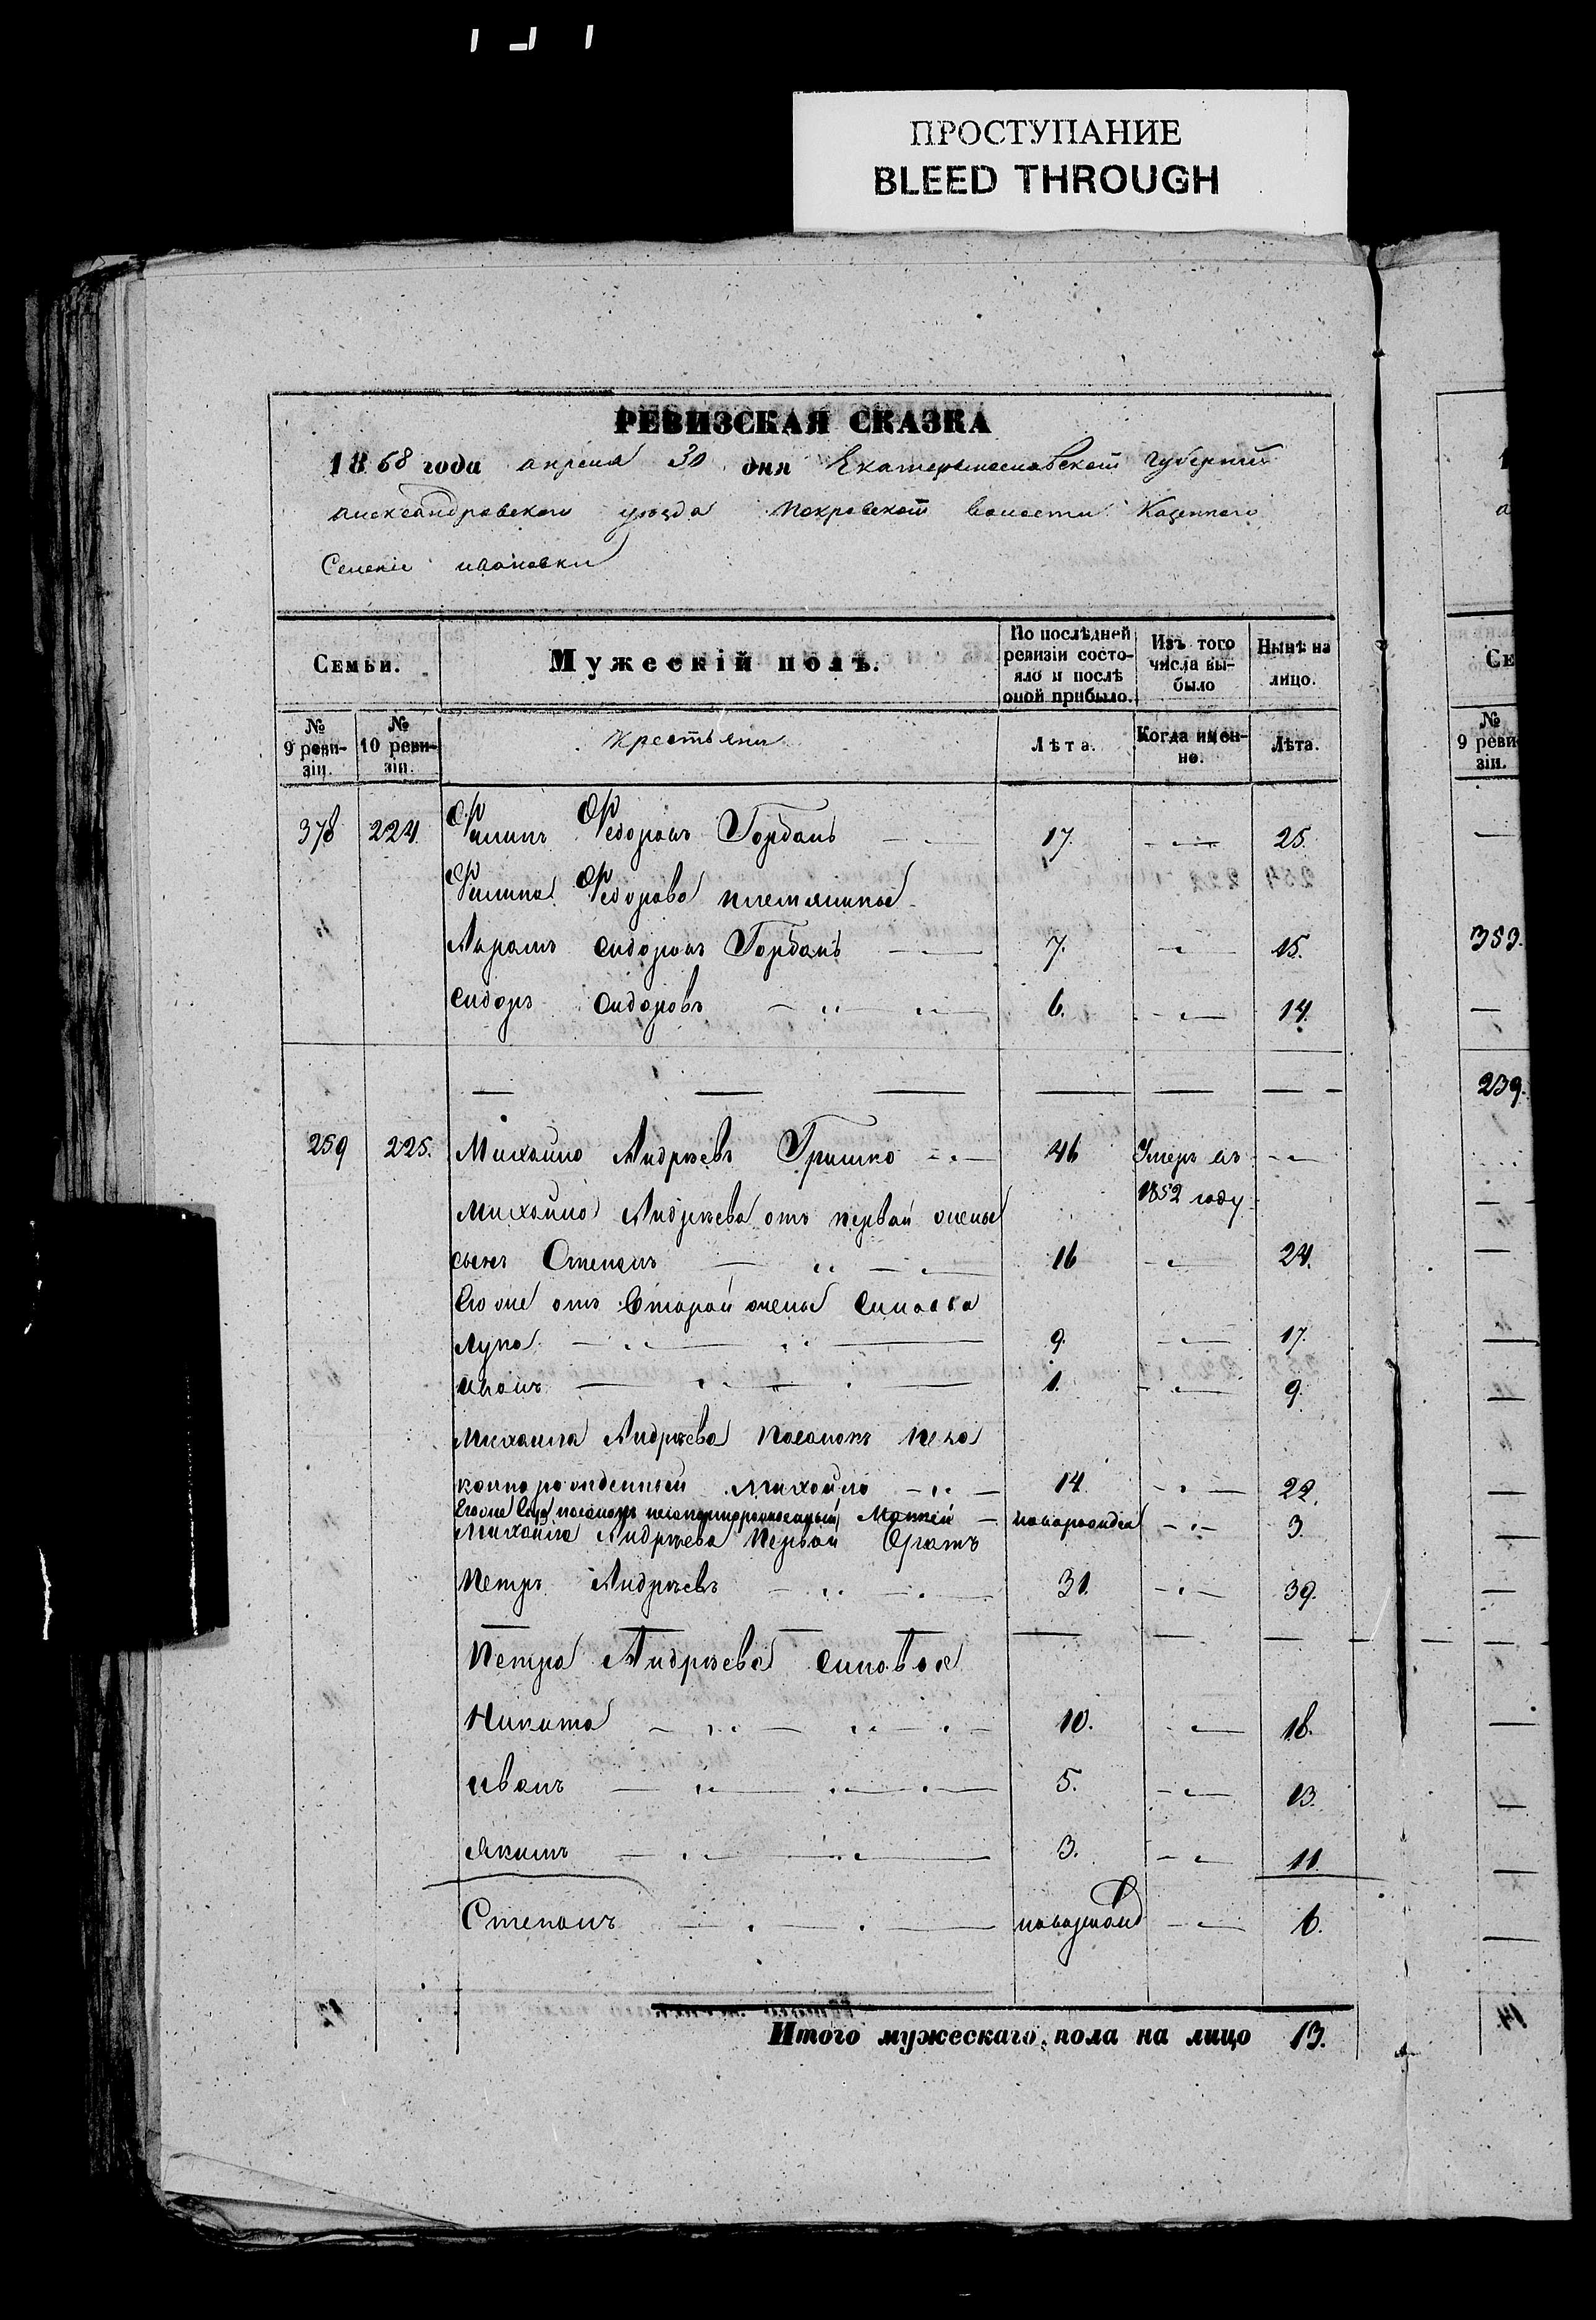 ПРОСТУПАНИЕ
BLEED THROUGH
РЕВИЗСКАЯ СКАЗКА
1858 года апреля 30 дня Екатеринославской Губернии
александровского уезда Покровской волости Казенного
Селения ивановки
Семьи.
Мужескій полъ.
По послѣдней ревизіи состояло и послѣ оной прибыло.
Изъ того числа выбыло
Нынѣ на лицо.
№ 9 ревизіи.
№ 10 ревизіи.
Крестьяни
Лѣта.
Когда именно.
Лѣта.
378 224. Филипъ Федоровъ Горбань 17. 25.
Филипа Федорова племянные
Аврамъ сидоровъ Горбань 7. 15.
сидоръ сидоровъ 6. 14.
259 225. Михайло Андреевъ Гришко 46 Умеръ въ
1852 году
Михайло Андреева отъ первой жены
сынъ Степанъ 16 24.
Его же отъ второй жены синовья
Лука 9. 17.
иванъ 1. 9.
Михаила Андреева Пасынокъ неза
коннорожденный Михайло 14 22.
Матвей новорожден 3.
Михайла Андреева Первой братъ
Петръ Андреевъ 31. 39.
Петра Андреева синовья
Никита 10. 18.
иванъ 5. 13.
якимъ 3. 11.
Степанъ новорожд 6.
Итого мужескаго пола на лицо 13.
Се
№ 9 реви зіи.
353.
239.